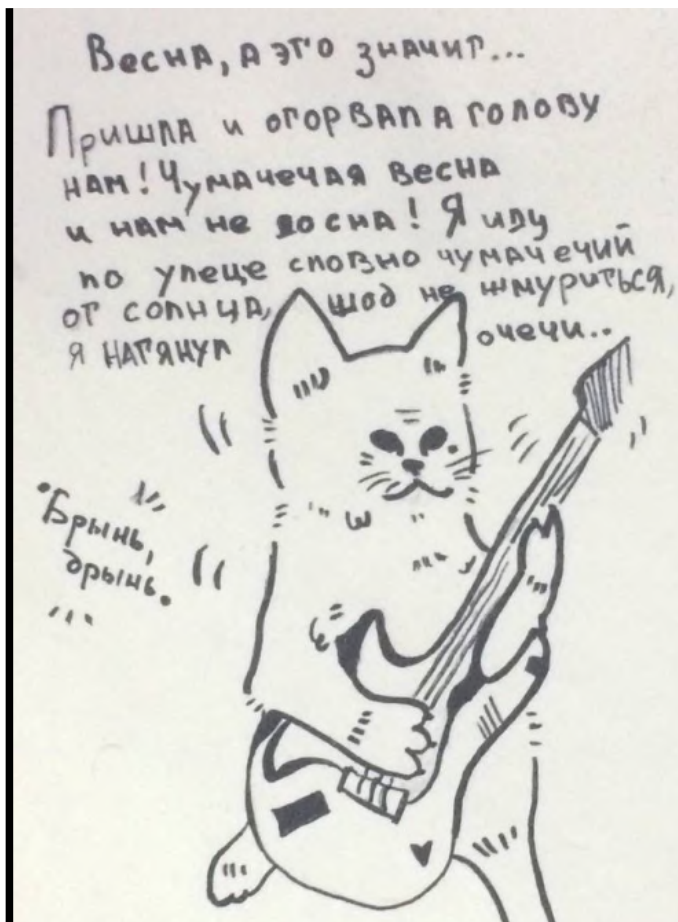 Весна, а это значит...
Пришла и оторвала голову
нам! Чумачечая весна
и нам не до сна! Я иду
по улеце словно чумачечий
от солнца, шоб не жмуриться,
я натянул очечи..
Брынь,
брынь.